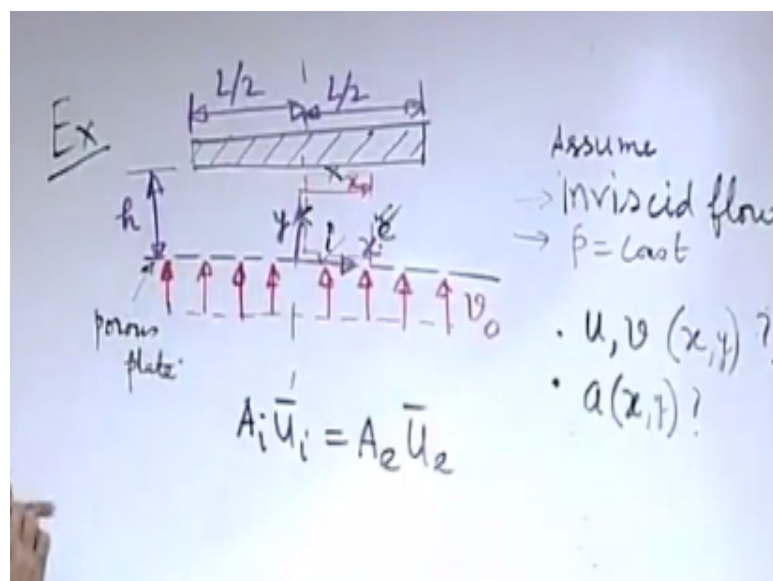 Ex
L/2 L/2
h
y
x
i
porous
plate
v₀
Assume
→ inviscid flow
→ ρ = const
· u, v (x,y) ?
· a(x,y) ?
A_i U̅_i = A_e U̅_e